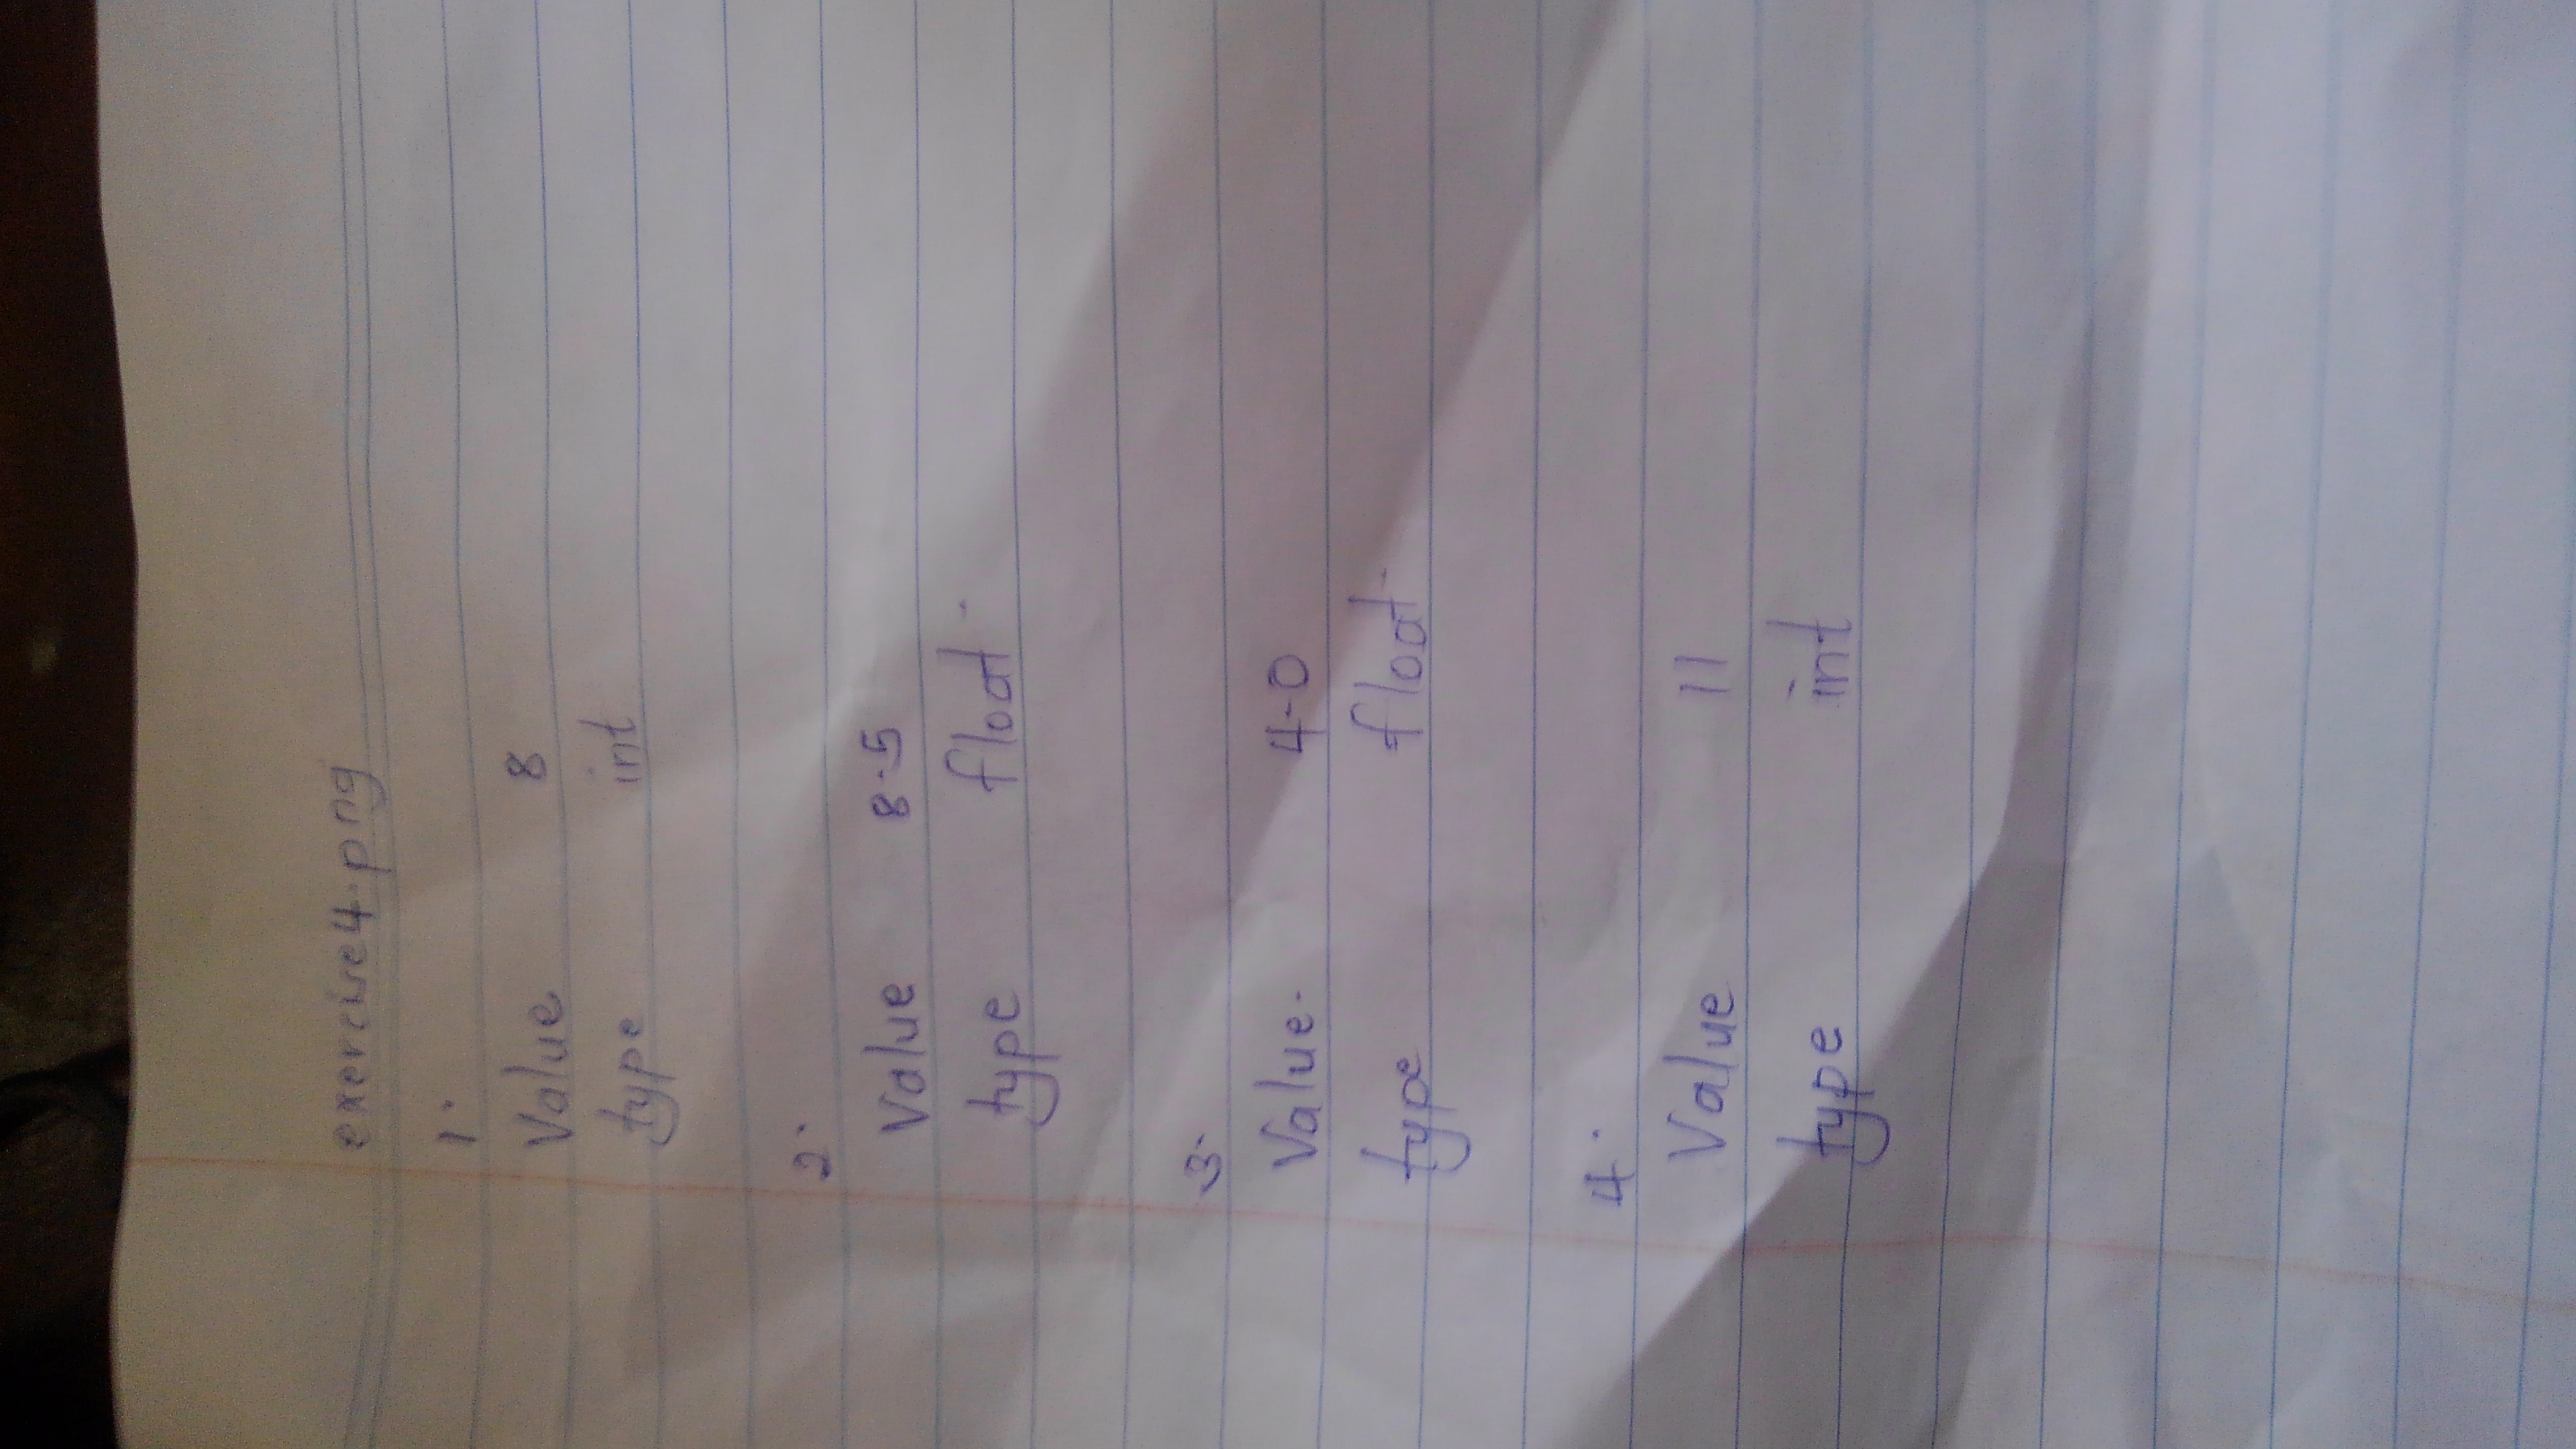 exercise4.png
1.
Value 8
type int
2.
Value 8.5
type float
3.
Value. 4.0
type float
4.
Value 11
type int